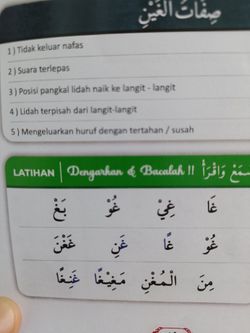 صِفَاتُ الْغَيْنِ
1 ) Tidak keluar nafas
2 ) Suara terlepas
3 ) Posisi pangkal lidah naik ke langit - langit
4 ) Lidah terpisah dari langit-langit
5 ) Mengeluarkan huruf dengan tertahan / susah
LATIHAN Dengarkan & Bacalah !! وَاقْرَأْ
غَا غِيْ غُوْ بَغْ
غُوْ غًا غَنِ غَغْنَ
مِنَ الْمُغْنِ مَغِيْغًا غَنِغًا